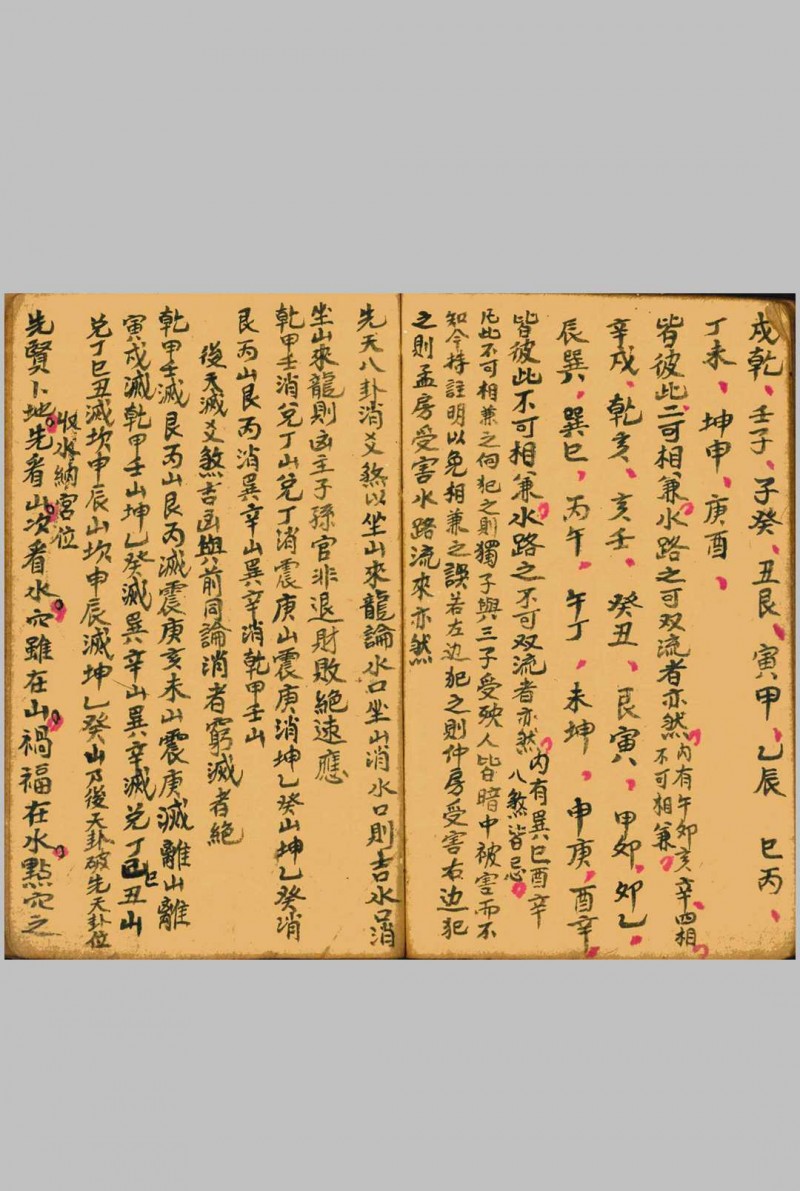 戌乾、壬子、子癸、丑艮、寅甲、乙辰 巳丙、
丁未、坤申、庚酉、
皆彼此二可相兼水路之可双流者亦然 内有午卯亥辛四相
不可相兼
辛戌、乾亥、亥壬、癸丑、艮寅、甲卯、卯乙、
辰巽、巽巳、丙午、午丁、未坤、申庚、酉辛、
皆彼此不可相兼水路之不可双流者亦然 内有巽巳酉辛
八煞皆忌
凡此不可相兼之向犯之則獨子與三子受殃人皆暗中被害而不
知今持註明以免相兼之誤若左边犯之則仲房受害右边犯
之則孟房受害水路流來亦然
先天八卦消爻煞以坐山來龍論水口坐山消水口則吉水口消
坐山來龍則凶主子孫官非退財敗絕速應
乾甲壬消兌丁山兌丁消震庚山震庚消坤乙癸山坤乙癸消
艮丙山艮丙消巽辛山巽辛消乾甲壬山
後天滅爻煞吉凶與前同論消者窮滅者絕
乾甲壬滅艮丙山艮丙滅震庚亥未山震庚滅離山離
寅戌滅乾甲壬山坤乙癸滅巽辛山巽辛滅兌丁巳丑山
兌丁巳丑滅坎申辰山坎申辰滅坤乙癸山乃後天卦破先天卦位
收水納宮位
先賢卜地先看山次看水穴雖在山禍福在水點穴之